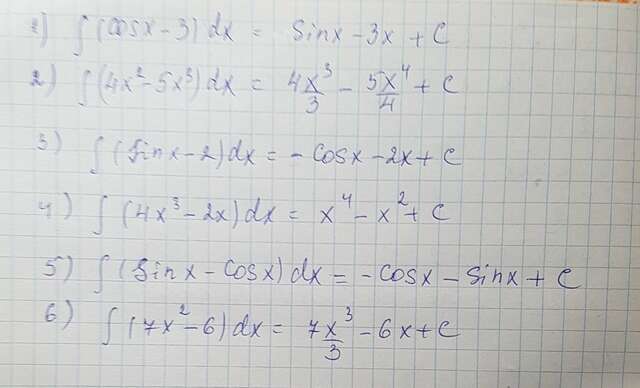 1) ∫(cosx - 3)dx = sinx - 3x + C
2) ∫(4x² - 5x³)dx = 4x³/3 - 5x⁴/4 + C
3) ∫(sinx - 2)dx = - cosx - 2x + C
4) ∫(4x³ - 2x)dx = x⁴ - x² + C
5) ∫(sinx - cosx)dx = - cosx - sinx + C
6) ∫(7x² - 6)dx = 7x³/3 - 6x + C